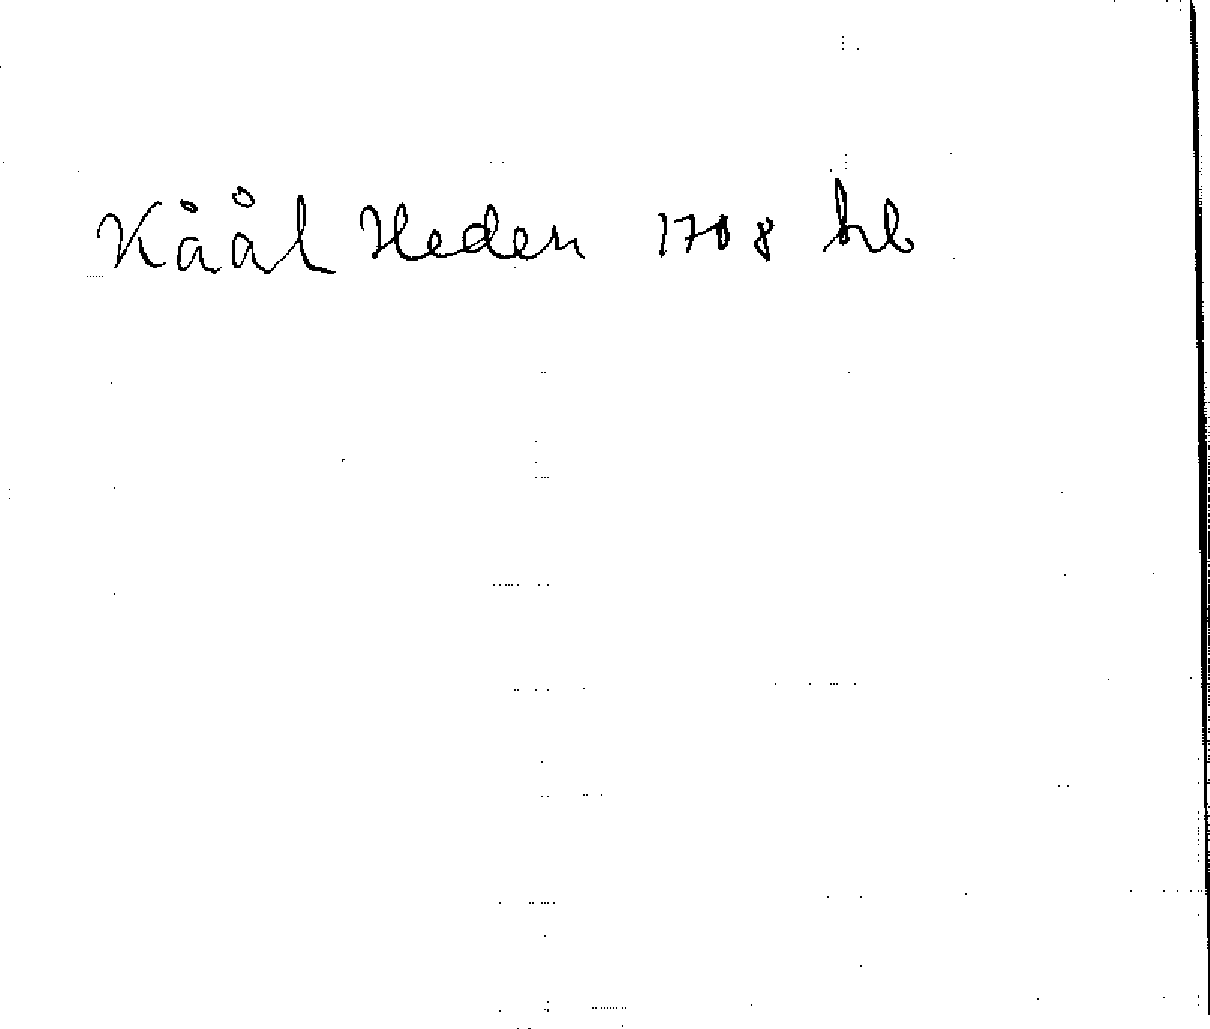 Kåål Heden 1708 hl